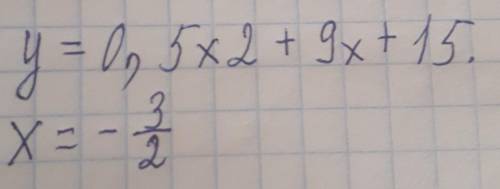 y = 0, 5x2 + 9x + 15.
x = - 3/2